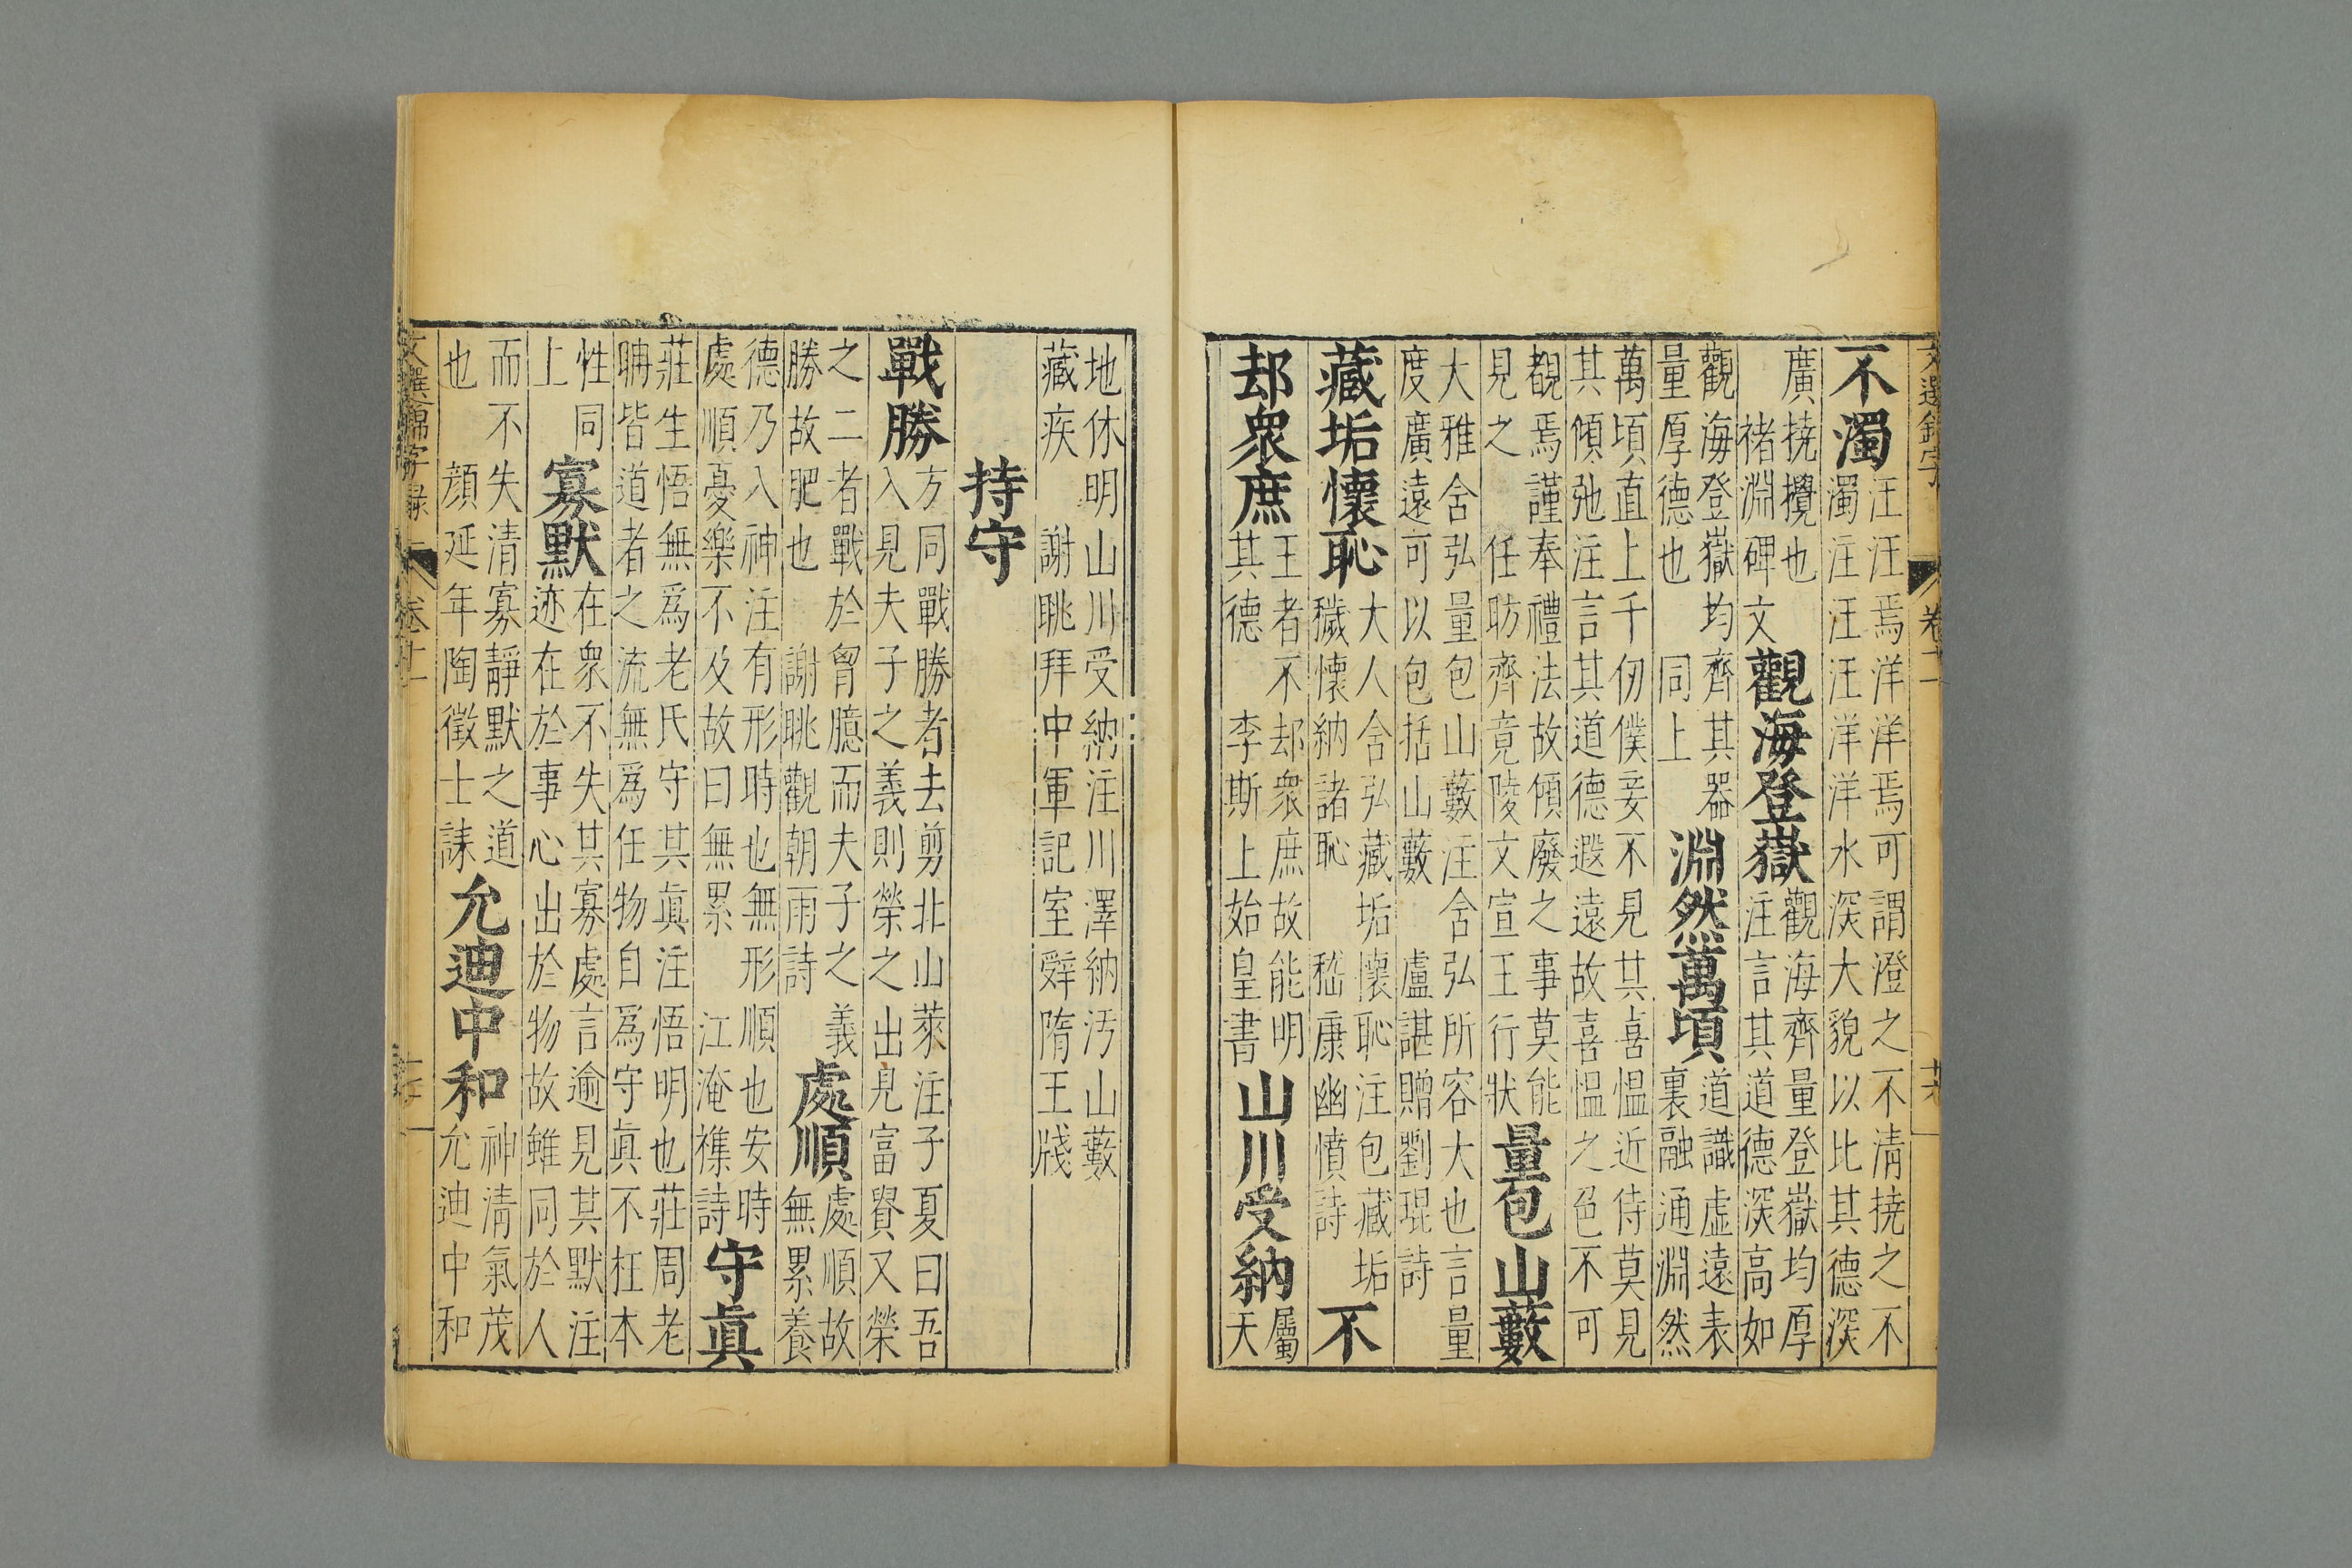 文選錦字 卷二十一 十六
不濁
汪汪焉洋洋焉可謂澄之不清撓之不
濁注汪汪洋洋水深大貌以比其德深
廣撓攪也
褚淵碑文
觀海登嶽
觀海齊量登嶽均厚
注言其道德深高如
觀海登嶽均齊其器
量厚德也 同上
淵然萬頃
道識虛遠表
裏融通淵然
萬頃直上千仞僕妾不見其喜慍近侍莫見
其傾弛注言其道德遐遠故喜慍之色不可
覩焉謹奉禮法故傾廢之事莫能
見之 任昉齊竟陵文宣王行狀
量包山藪
大雅含弘量包山藪注含弘所容大也言量
度廣遠可以包括山藪 盧諶贈劉琨詩
藏垢懷恥
大人含弘藏垢懷恥注包藏垢
穢懷納諸恥 嵇康幽憤詩
不
却衆庶
王者不却衆庶故能明
其德 李斯上始皇書
山川受納
屬
天
地休明山川受納注川澤納汚山藪
藏疾 謝朓拜中軍記室辤隋王牋
持守
戰勝
方同戰勝者去剪北山萊注子夏曰吾
入見夫子之義則榮之出見富貴又榮
之二者戰於胷臆而夫子之義
勝故肥也 謝朓觀朝雨詩
處順
處順故
無累養
德乃入神注有形時也無形順也安時
處順憂樂不及故曰無累 江淹襍詩
守眞
莊生悟無爲老氏守其眞注悟明也莊周老
聃皆道者之流無爲任物自爲守眞不枉本
性同
上
寡默
在衆不失其寡處言逾見其默注
迹在於事心出於物故雖同於人
而不失清寡靜默之道
也 顏延年陶徵士誄
允迪中和
神清氣茂
允迪中和
文選錦字録 卷廿一